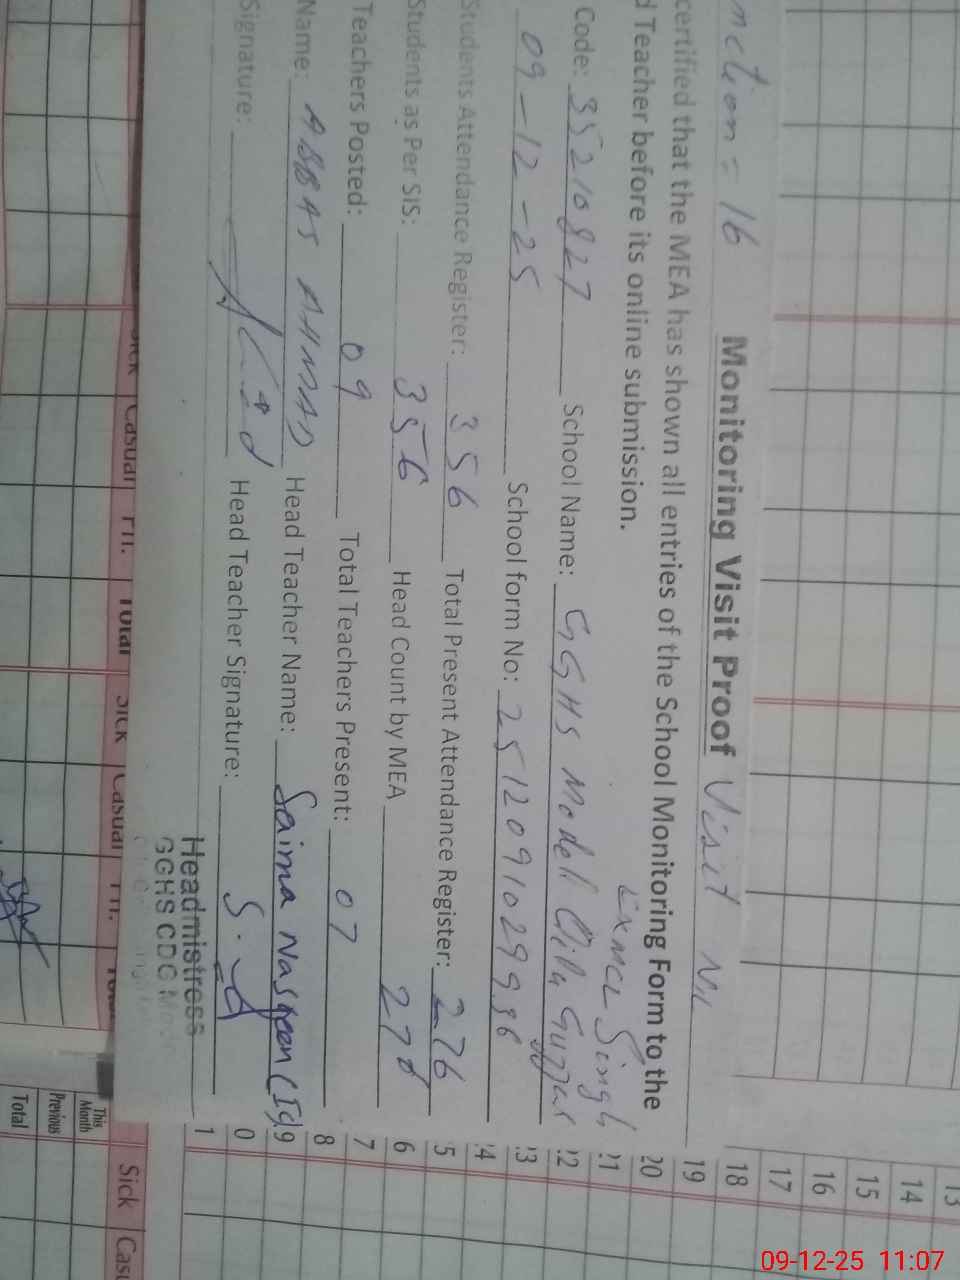 nction = 16
Monitoring Visit Proof Visit
certified that the MEA has shown all entries of the School Monitoring Form to the
d Teacher before its online submission.
Ex MCL Singh
Code: 35210827 School Name: GGHS Model Gujjar
09-12-25 School form No: 25120910299
Students Attendance Register: 356 Total Present Attendance Register: 276
Students as Per SIS: 356 Head Count by MEA 278
Teachers Posted: 09 Total Teachers Present: 07
Name: ABBAS AHMAD Head Teacher Name: Saima Nasreen
Signature: Head Teacher Signature:
Headmistress
GGHS CDG
Sick Casual Fri. Total Sick Casual Fri. Total
This Month
Previous
Total
Sick Casu
13
14
15
16
17
18
19
20
21
22
23
24
25
26
27
28
29
0
1
09-12-25 11:07